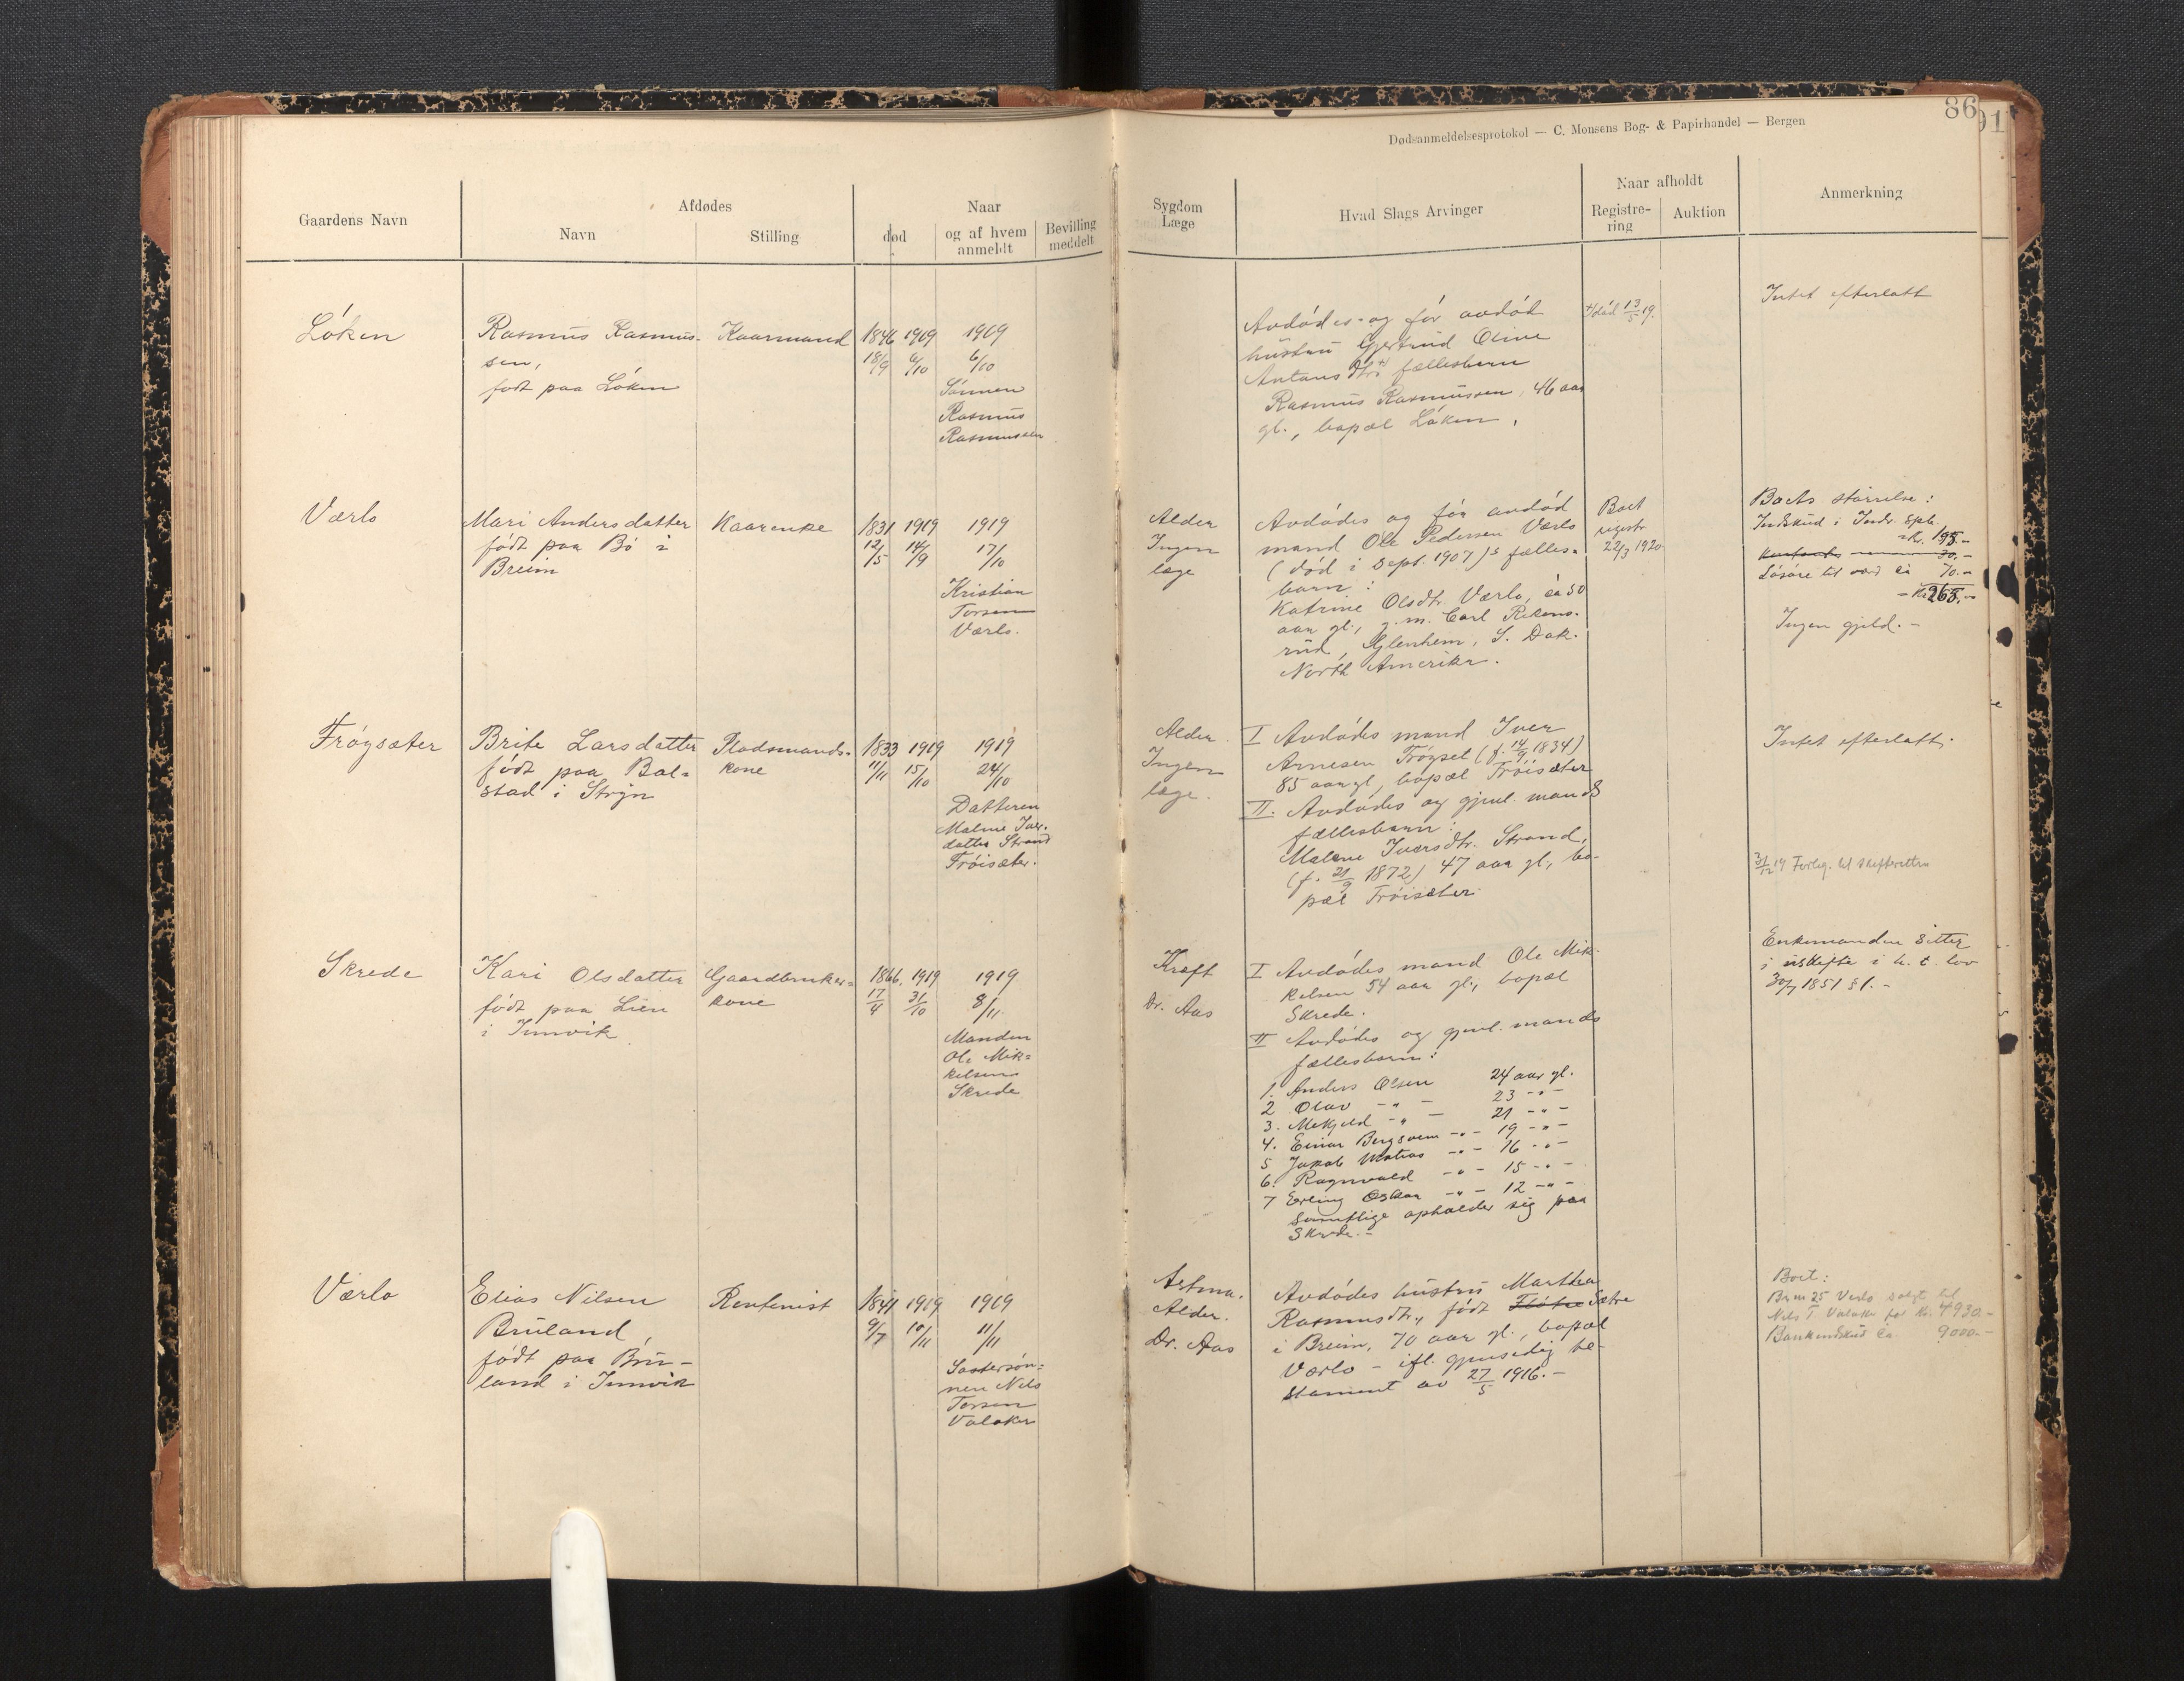 86
91
Dødsanmeldelsesprotokol — C. Monsens Bog- & Papirhandel — Bergen
Gaardens Navn
Afdødes
Navn
Stilling
Naar
død
og af hvem anmeldt
Bevilling meddelt
Sygdom
Læge
Hvad Slags Arvinger
Naar afholdt
Registrering
Auktion
Anmerkning
Løken
Rasmus Rasmus-
sen,
født paa Løken
Kaarmand
1846 1919
18/9 6/10
1919
6/10
Sønnen
Rasmus
Rasmussen
Avdødes og før avdød
hustru Gjertrud Oline
Antons dtr.s fællesbarn
Rasmus Rasmussen, 46 aar
gl., bopæl Løken.
+/ død 13/5 19.
Intet efterlatt
Værlo
Mari Andersdatter
født paa Bø i
Breim
Kaarenke
1831 1919
12/5 14/9
1919
17/10
Kristian
Tersen
Værlo.
Alder
Ingen
læge
Avdødes og før avdød
mand Ole Pedersen Værlo
(død i Sept. 1907)s fælles-
barn:
Katrine Olsdtr. Værlo, ca 50
aar gl., g.m. Carl
Glenhem, S. Dak.
North Amerika.
Boet
registr.
22/3 1920.
Boets størrelse:
Indskud i Indv. Spb.
kr. 195.-
30.-
Løsøre til værd ca 70.-
- Kr 265.-
Ingen gjeld.-
Frøysæter
Brite Larsdatter
født paa Bol-
stad i Stryn
Pladsmands-
kone
1833 1919
11/11 15/10
1919
24/10
Datteren
Malene Iver-
datter Strand
Frøisæter.
Alder
Ingen
læge.
I Avdødes mand Iver
Arnesen Frøyset (f. 14/9 1834)
85 aar gl, bopæl Frøisæter
II. Avdødes og gjenl. mands
fællesbarn:
Malene Iversdtr. Strand,
(f. 21/9 1872) 47 aar gl, bo-
pæl Frøisæter
Intet efterlatt.
31/12 19 Forlig. til skifteretten
Skrede
Kari Olsdatter
født paa Lien
i Innvik
Gaardbruker-
kone
1866. 1919
17/4 31/10
1919
8/11
Manden
Ole Mik-
kelsen
Skrede
Kræft
Dr. Aas
I Avdødes mand Ole Mik-
kelsen 54 aar gl., bopæl
Skrede.
II Avdødes og gjenl. mands
fællesbarn:
1. Anders Olsen 24 aar gl.
2 Olav -"- 23 -"-
3. -"- 21 -"-
4. Einar Bergsvein -"- 19 -"-
5 Jakob Matias -"- 16 -"-
6. Ragnvald -"- 15 -"-
7 Erling Oskar -"- 12 -"-
Samtlige opholder sig paa
Skrede.-
Enkemanden sitter
i uskifte i h. t. lov
30/7 1851 § 1.-
Værlo
Elias Nilsen
Bruland,
født paa Bru-
land i Innvik
Rentenist
1841 1919
9/7 10/11
1919
11/11
Søstersøn-
nen Nils
Tersen
Valaker
Astma.
Alder.
Dr. Aas
Avdødes hustru Martha
Rasmusdtr., født Fløtre Sætre
i Breim, 70 aar gl., bopæl
Værlo - ifl. gjensidig te-
stament av 27/5 1916.-
Boet:
Brnr 25 Verlo solgt til
Nils T Valaker for Kr. 4930.-
Bankindskud ca. 9000.-